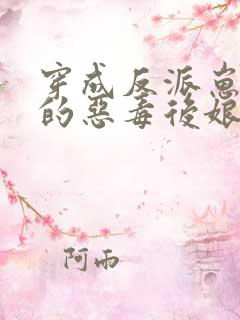 穿成反派崽
的惡毒後娘
阿雨